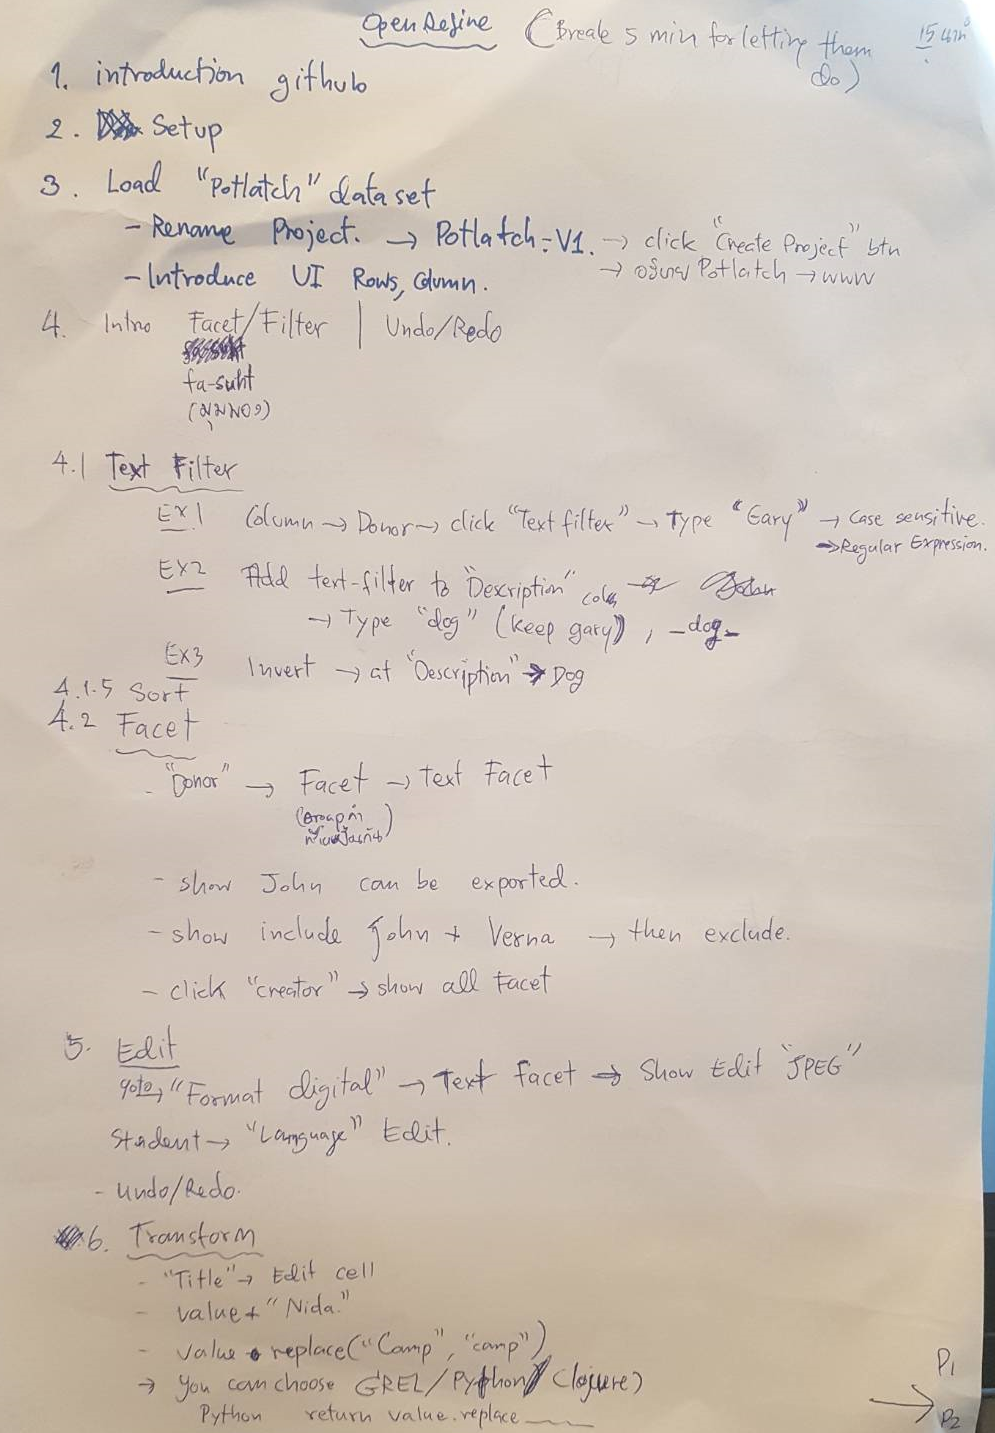 OpenRefine (Break 5 min for letting them do) 15 นาที
1. introduction github
2. Setup
3. Load "Potlatch" dataset
- Rename Project. → Potlatch-V1. → click "Create Project" btn
→ อธิบาย Potlatch → www
- Introduce UI Rows, Column.
4. Intro Facet/Filter | Undo/Redo
fa-suht
(มุมมอง)
4.1 Text Filter
EX1 Column → Donor → click "Text filter" → Type "Gary" → Case sensitive.
→ Regular Expression.
EX2 Add text-filter to "Description"
→ Type "dog" (keep gary), _dog_
EX3 Invert → at "Description" → Dog
4.1.5 Sort
4.2 Facet
- "Donor" → Facet → Text Facet
- show John can be exported.
- show include John + Verna → then exclude.
- click "creator" → show all Facet
5. Edit
goto → "Format digital" → Text facet → Show Edit "JPEG"
Student → "Language" Edit.
- Undo/Redo.
6. Transform
- "Title" → Edit cell
- value + "Nida."
- value.replace("Camp", "camp")
→ You can choose GREL/Python/Clojure)
Python return value.replace
P1
→ P2